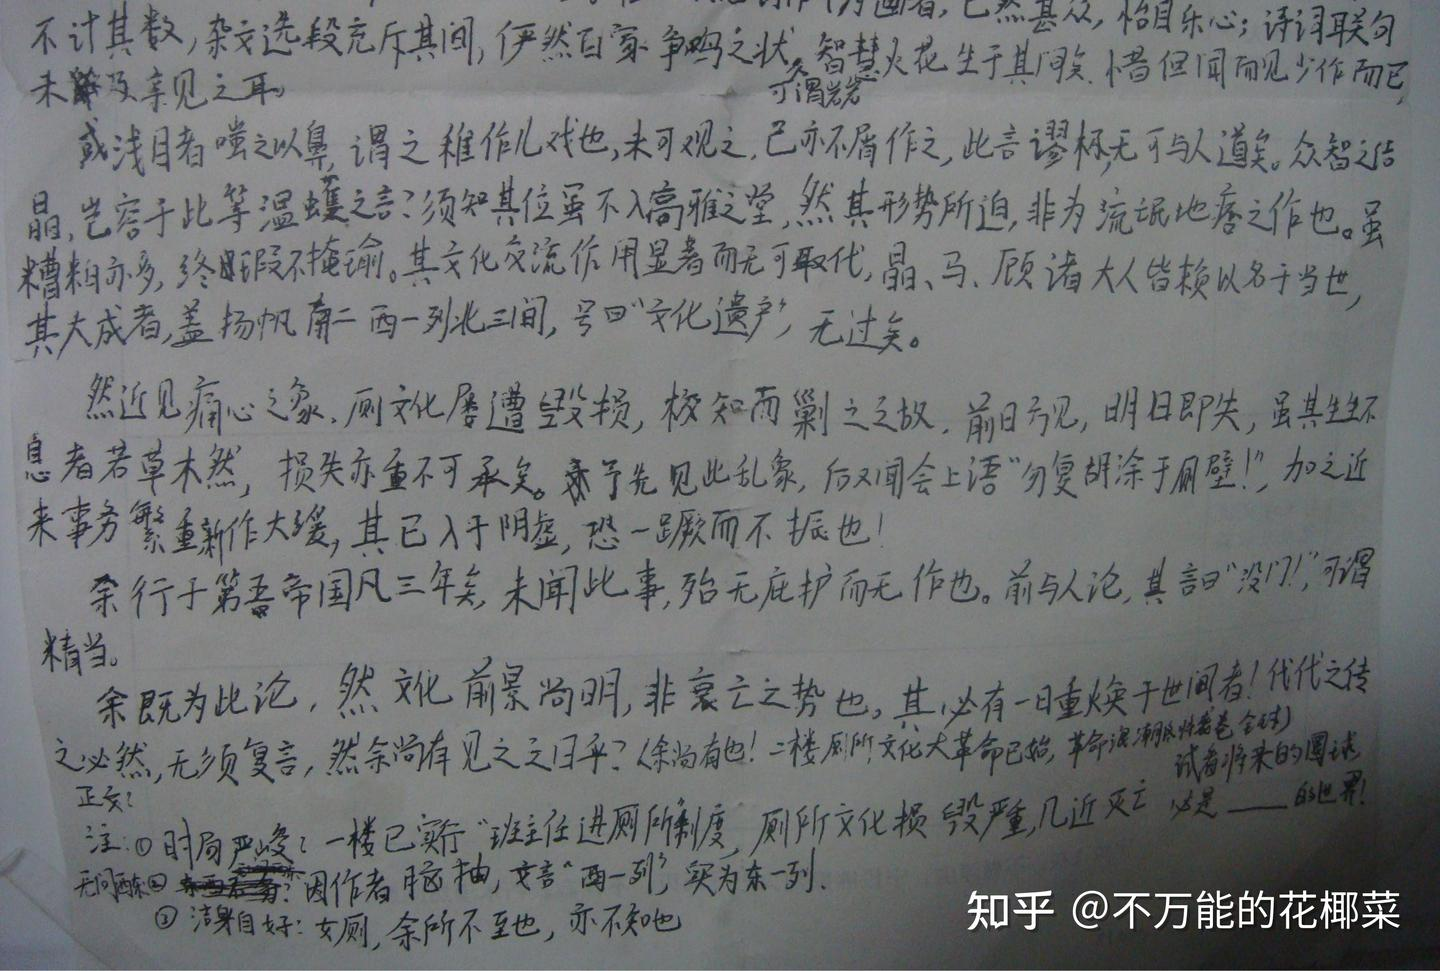 者，已然甚众，怡目乐心；诗词联句
不计其数，杂文选段充斥其间，俨然百家争鸣之状，智慧火花生于其间矣，惜但闻而见少作而已，
可谓
未及亲见之耳。
或浅目者嗤之以鼻，谓之稚作儿戏也，未可观之，己亦不屑作之，此言谬极，无可与人道矣。众智之结
晶，岂容于此等温蠖之言？须知其位虽不入高雅之堂，然其形势所迫，非为流氓地痞之作也。虽
糟粕亦多，终瑕不掩瑜。其文化交流作用显著而无可取代，晶、马、顾诸大人皆赖以名于当世，
其大成者，盖扬帆南二西一列北三间，号曰“文化遗产”，无过矣。
然近见痛心之象，厕文化屡遭毁损，校知而剿之之故，前日方见，明日即失，虽其生生不
息者若草木然，损失亦重不可承矣。予先见此乱象，后又闻会上语“勿复胡涂于厕壁！”，加之近
来事务繁重，新作大缓，其已入于阴虚，恐一蹶而不振也！
余行于第吾帝国凡三年矣，未闻此事，殆无庇护而无作也。前与人论，其言曰“没门！”，可谓
精当。
余既为此论，然文化前景尚明，非衰亡之势也，其必有一日重焕于世间者！代代之传
之必然，无须复言，然余尚有见之之日乎？（余尚有也！二楼厕所文化大革命已始，革命浪潮必将席卷全球）
试看将来的圜球
正文？
必是____的世界！
注：①时局严峻？一楼已实行“班主任进厕所”制度，厕所文化损毁严重，几近灭亡
无问西东②因作者脑抽，文言“西一列”，实为东一列.
③洁身自好：女厕，余所不至也，亦不知也
知乎 @不万能的花椰菜